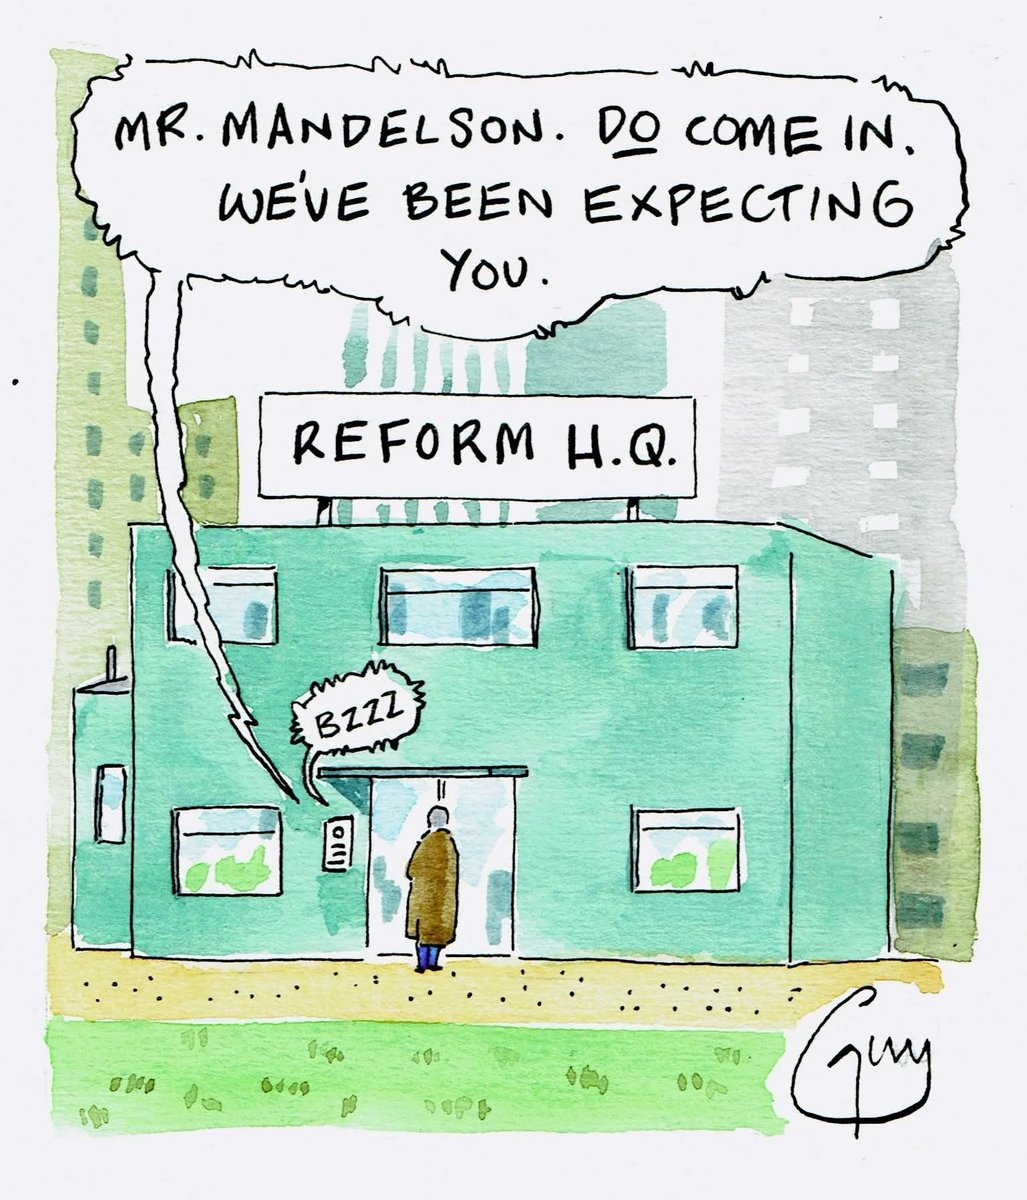 MR. MANDELSON. DO COME IN.
WE'VE BEEN EXPECTING
YOU.
REFORM H.Q.
BZZZ
Guy